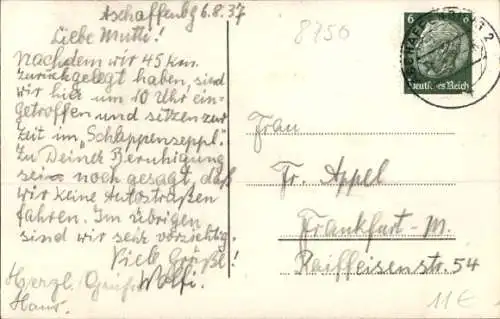 Aschaffenbg 6.8.37
Liebe Mutti!
Nachdem wir 45 km
zurückgelegt haben, sind
wir hier um 10 Uhr ein-
getroffen und sitzen zur
Zeit im „Schlappenseppl".
Zu Deiner Beruhigung
sei noch gesagt, daß
wir keine Autostraßen
fahren. Im übrigen
sind wir sehr vorsichtig.
Viele Grüße!
Wolfi.
Herzl.
Hans.
8750
6 6
Deutsches Reich
ASCHAFFENBURG 2
Frau
Fr. Appel
Frankfurt-M.
Raiffeisenstr. 54
11€